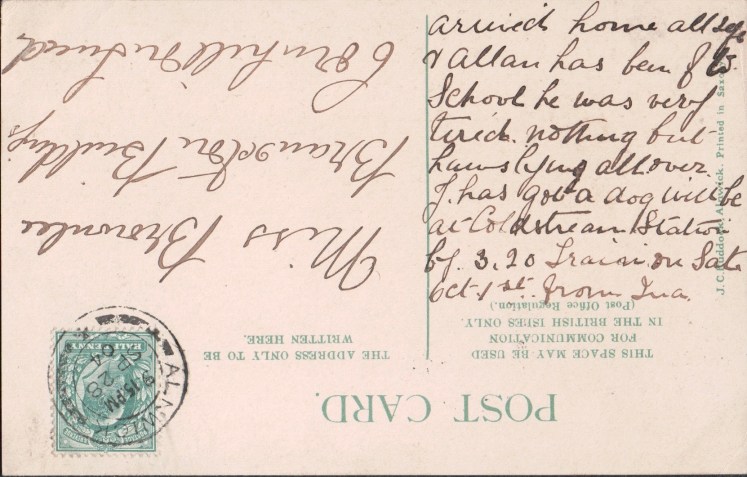 POST CARD.
THIS SPACE MAY BE USED
FOR COMMUNICATION
IN THE BRITISH ISLES ONLY.
(Post Office Regulation.)
THE ADDRESS ONLY TO BE
WRITTEN HERE.
HALFPENNY
ALNWICK
9.15PM
SP 28
04
Miss Brownlee
Branxton Buildings
Cornhill on Tweed
arrived home all safe
& Allan has been
School he was very
tired. nothing but
lying all over.
J. has got a dog will be
at Coldstream Station
by 3.20 Train on Sat
Oct 1st. from Ina
Alnwick. Printed in